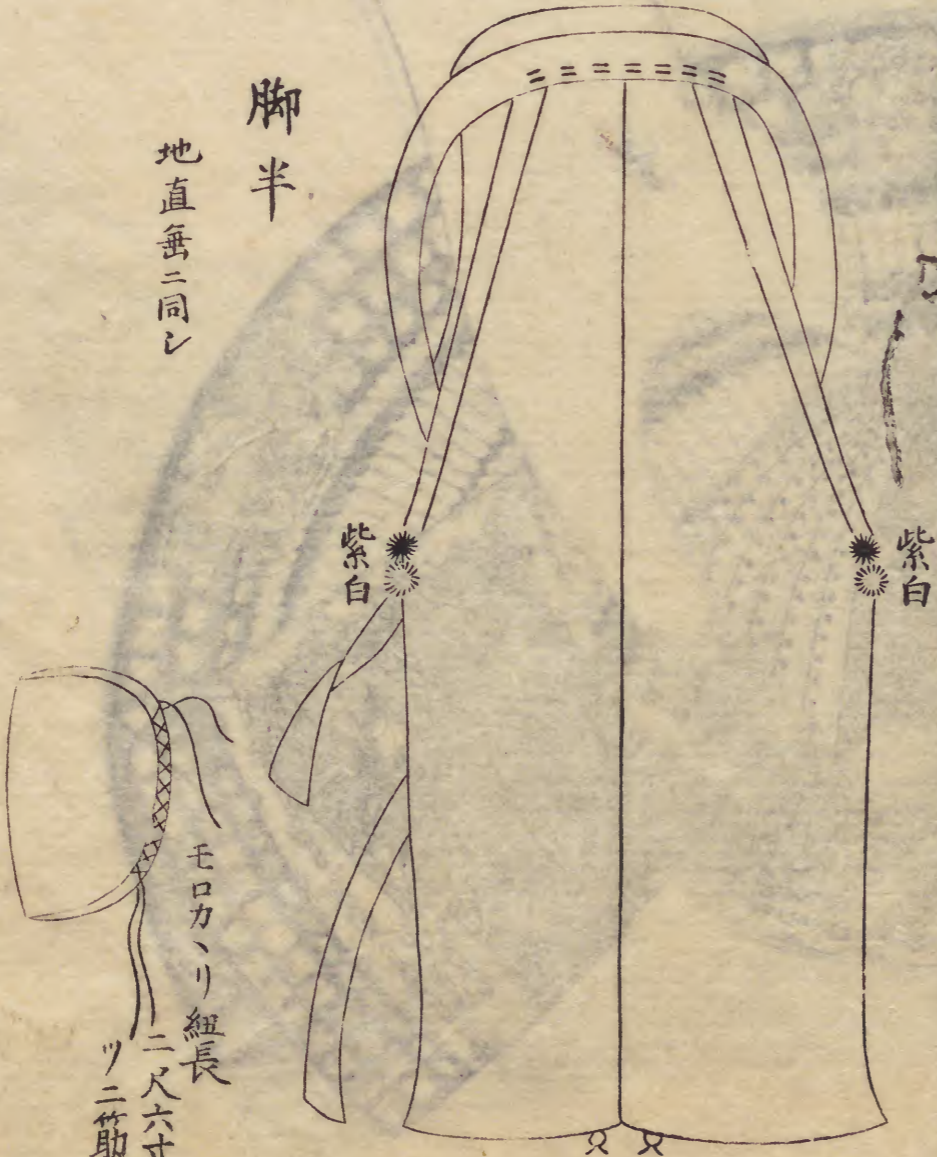 紫白
紫白
脚半
地直垂ニ同シ
モロカヽリ紐長
二尺六寸
ツヽ二筋